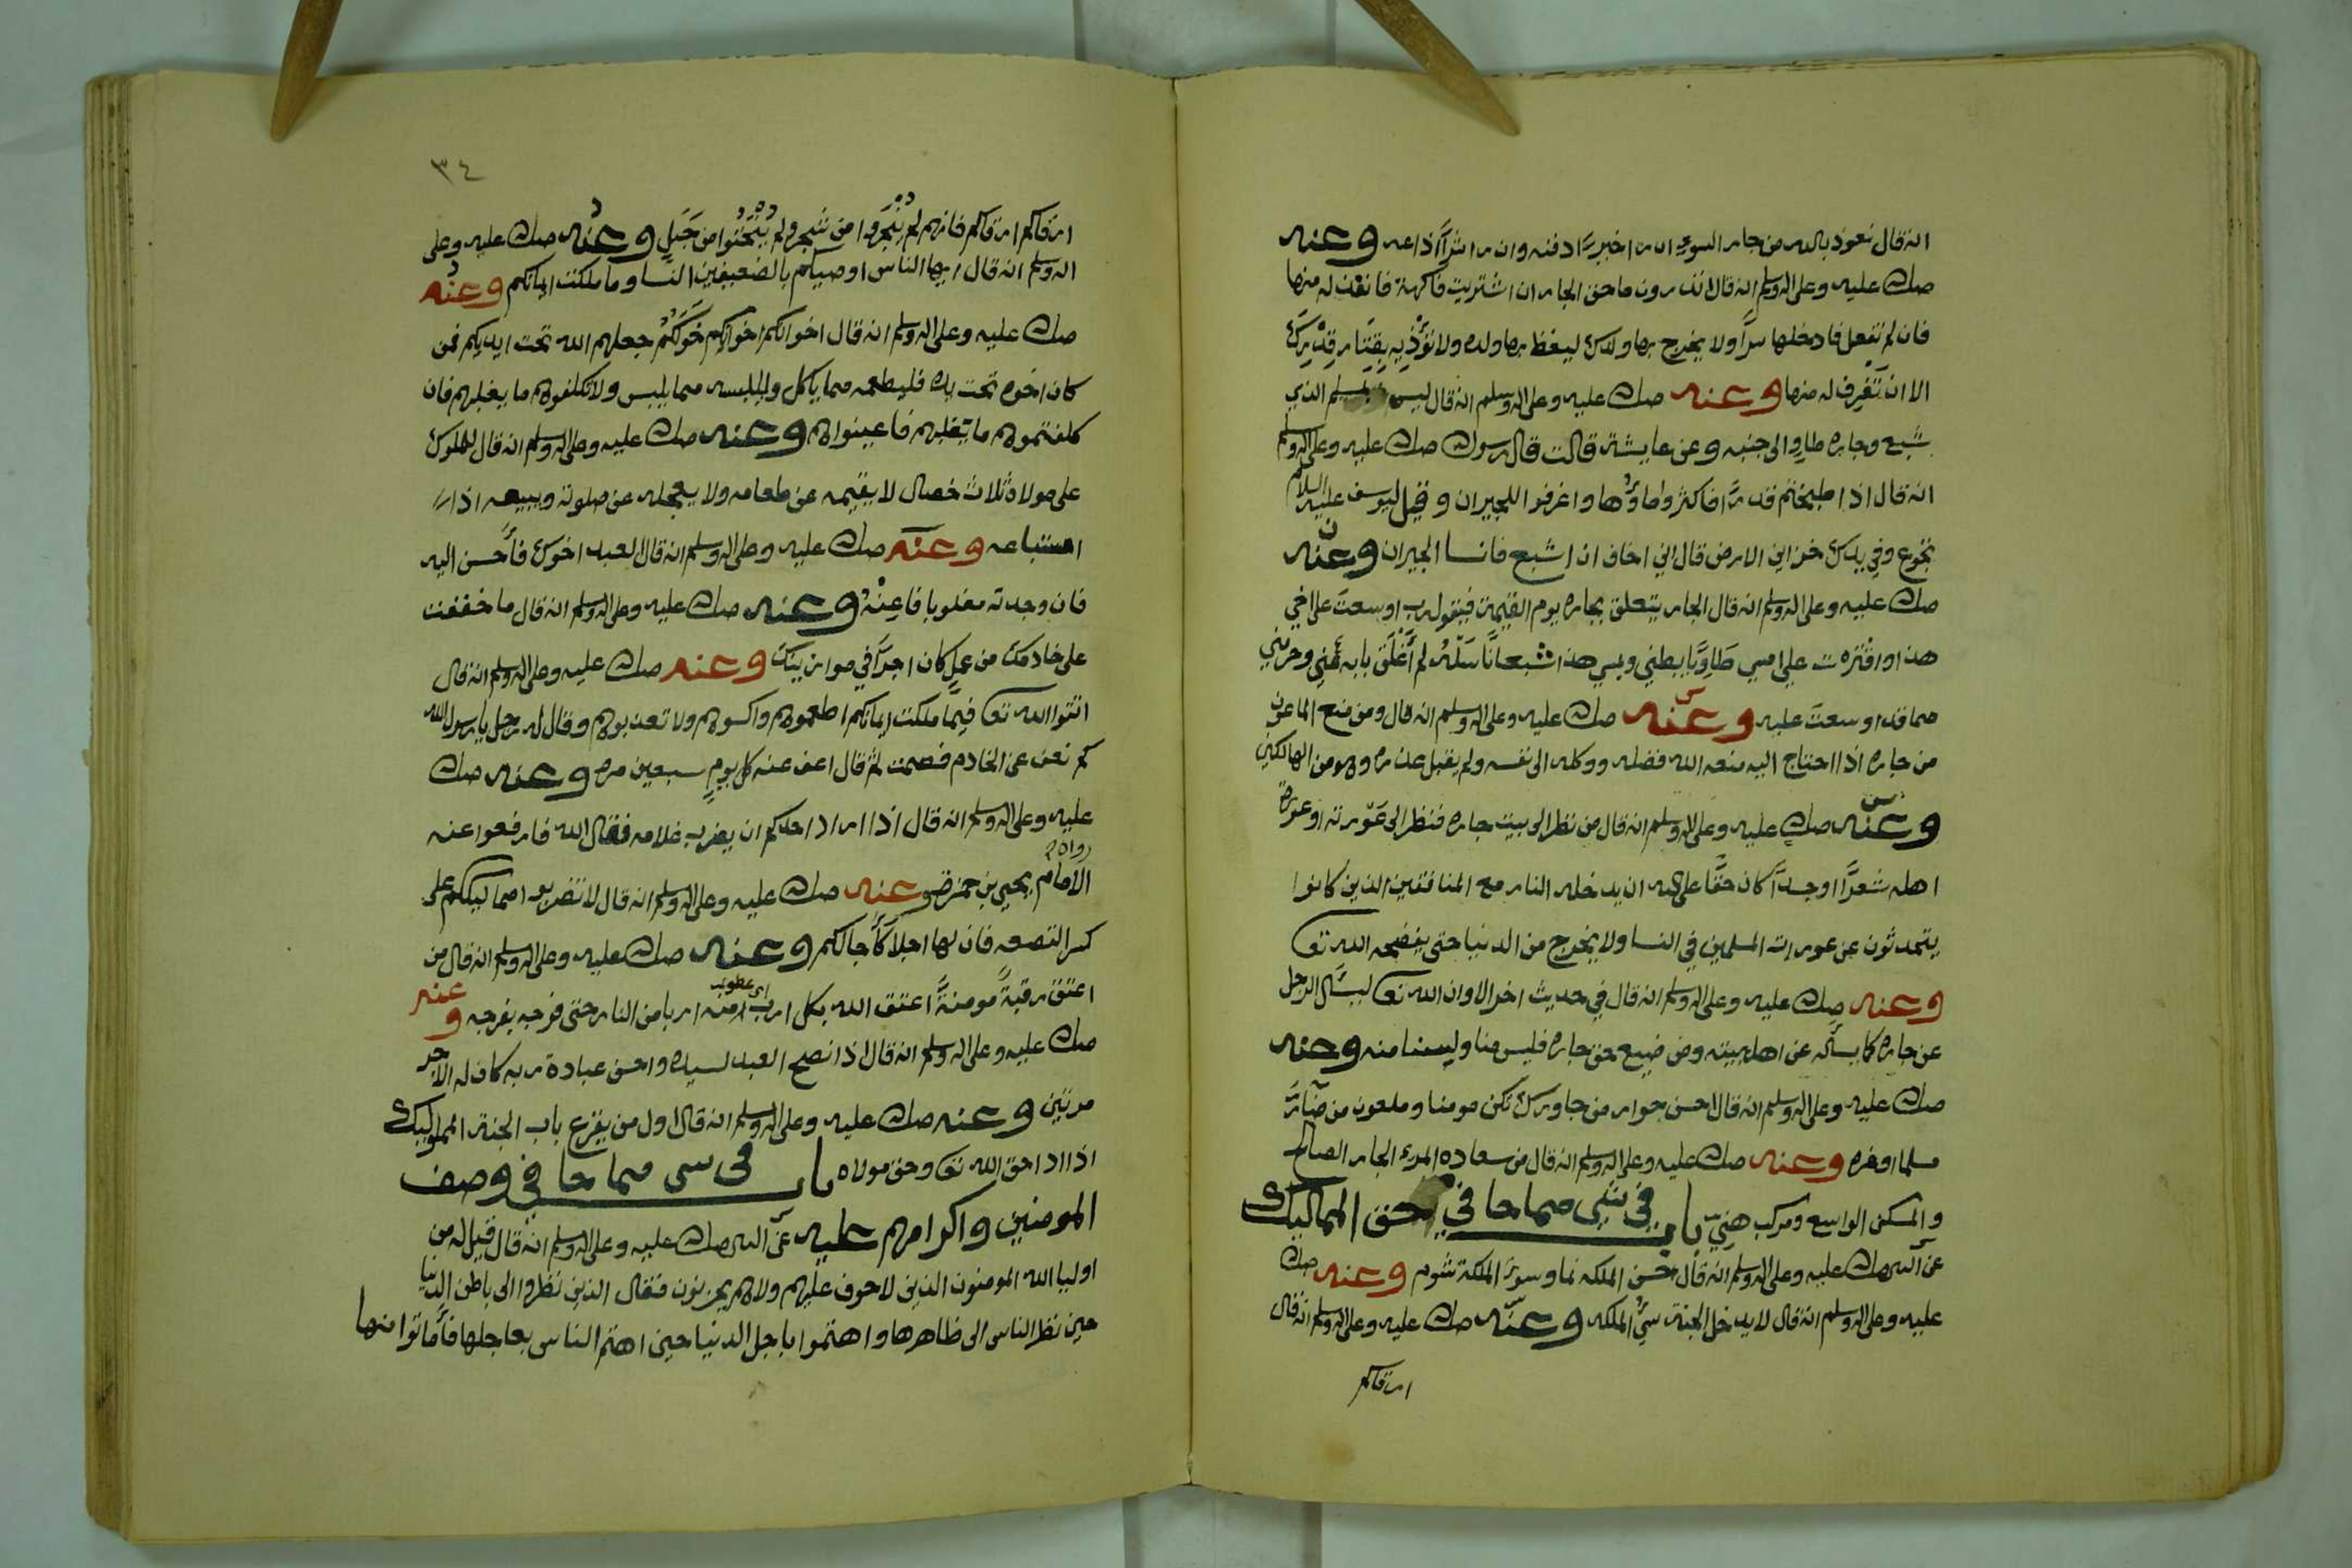 انه قال نعوذ بالله من جار السوء ان را خيرا دفنه وان را شرا اذاعه وعنه
صلى الله عليه وعلى اله وسلم انه قال اتدرون ما حق الجار ان اشتريت فاكهة فانفت له منها
فان لم تفعل فادخلها سرا ولا يخرج بها ولدك ليغظ بها ولده ولا تؤذيه بقتار قدرك
الا ان تغرف له منها وعنه صلى الله عليه وعلى اله وسلم انه قال ليس المسلم الذي
شبع وجاره طاو الى جنبه وعن عايشة قالت قال رسول الله صلى الله عليه وعلى اله وسلم
انه قال اذا طبختم قدرا فاكثروا ماؤها واغرفوا للجيران وقيل ليوسف عليه السلام
تجوع وفي يدك خزاين الارض قال اني اخاف ان اشبع فانسا الجيران وعنه
صلى الله عليه وعلى اله وسلم انه قال الجار يتعلق بجاره يوم القيمة فيقول رب اوسعت على اخي
هذا واقترت علي امسي طاويا بطني ويمسي هذا شبعانا سله لم اغلق بابه عني وحرمني
مما قد اوسعت عليه وعنه صلى الله عليه وعلى اله وسلم انه قال ومن منع الماعون
من جاره اذا احتاج اليه منعه الله فضله ووكله الى نفسه ولم يقبل عذره وهو من الهالكين
وعنه صلى الله عليه وعلى اله وسلم انه قال من نظر الى بيت جاره فنظر الى عورته او عورة
اهله شعرا او جسدا كان حقا على الله ان يدخله النار مع المنافقين الذين كانوا
يتحدثون عن عورات المسلمين في النسا ولا يخرج من الدنيا حتى يفضحه الله تعا
وعنه صلى الله عليه وعلى اله وسلم انه قال في حديث اخر الا وان الله تعا ليسئال الرجل
عن جاره كما يسأله عن اهل بيته ومن ضيع حق جاره فليس منا ولسنا منه وعنه
صلى الله عليه وعلى اله وسلم انه قال احسن جوار من جاورك تكن مومنا وملعون من ضار
مسلما او غره وعنه صلى الله عليه وعلى اله وسلم انه قال من سعادة المرء الجار الصالح
والمسكن الواسع ومركب هني باب في شي مما جا في حق المماليك
عن النبي صلى الله عليه وعلى اله وسلم انه قال حسن الملكه نما وسوء الملكة شوم وعنه صلى الله
عليه وعلى اله وسلم انه قال لا يدخل الجنة سيئ الملكه وعنه صلى الله عليه وعلى اله وسلم انه قال
ارقاكم
٣٤
ارقاكم ارقاكم فانهم لم ينجروا من شجر ولم ينحتوا من جبل وعنه صلى الله عليه وعلى
اله وسلم انه قال ايها الناس اوصيكم بالضعيفين النسا وما ملكت ايمانكم وعنه
صلى الله عليه وعلى اله وسلم انه قال اخوانكم اخوانكم خولكم جعلهم الله تحت ايديكم فمن
كان اخوه تحت يده فليطعمه مما ياكل وليلبسه مما يلبس ولا تكلفوهم ما يغلبهم فان
كلفتموهم ما يغلبهم فاعينوهم وعنه صلى الله عليه وعلى اله وسلم انه قال للملوك
على مولاه ثلاث خصال لا يقيمه عن طعامه ولا يعجله عن صلوته ويبيعه اذا
استباعه وعنه صلى الله عليه وعلى اله وسلم انه قال العبد اخوك فاحسن اليه
فان وجدته مغلوبا فاعنه وعنه صلى الله عليه وعلى اله وسلم انه قال ما خففت
على خادمك من عمل كان اجرا في موازينك وعنه صلى الله عليه وعلى اله وسلم انه قال
اتقوا الله تعا فيما ملكت ايمانكم اطعموهم واكسوهم ولا تعذبوهم وقال له رجل يا رسول الله
كم نعف عن الخادم فصمت ثم قال اعف عنه كل يوم سبعين مره وعنه صلى الله
عليه وعلى اله وسلم انه قال اذا اراد احدكم ان يضرب غلامه فقال الله فارفعوا عنه
رواه
الامام يحيى بن حمزه وعنه صلى الله عليه وعلى اله وسلم انه قال لا تضربوا مماليككم على
كسر القصعه فان لها اجلا كأجالكم وعنه صلى الله عليه وعلى اله وسلم انه قال من
اعتق رقبة مومنة اعتق الله بكل ارب منه اربا من النار حتى فرجه بفرجه وعنه
اي عطوب
صلى الله عليه وعلى اله وسلم انه قال اذا نصح العبد لسيده واحسن عبادة ربه كان له الاجر
مرتين وعنه صلى الله عليه وعلى اله وسلم انه قال اول من يقرع باب الجنة المملوكيك
اذا ادا حق الله تعا وحق مولاه باب في شي مما جا في وصف
المومنين واكرامهم عليه عن النبي صلى الله عليه وعلى اله وسلم انه قال قيل له من
اوليا الله المومنون الذين لا خوف عليهم ولا هم يحزنون فقال الذين نظروا الى باطن الدنيا
حين نظر الناس الى ظاهرها واهتموا باجل الدنيا حين اهتم الناس بعاجلها فأماتوا منها